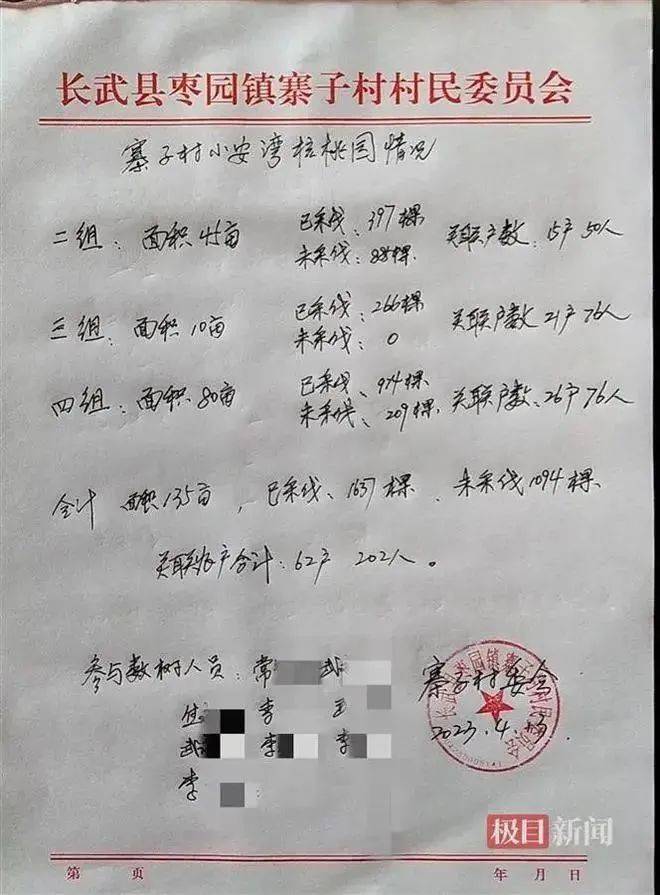 长武县枣园镇寨子村村民委员会
寨子村小安湾核桃园情况
二组：面积45亩 已采伐：397棵 关联户数：15户50人
未采伐：885棵
三组：面积10亩 已采伐：266棵 关联户数21户76人
未采伐：0
四组：面积80亩 已采伐：974棵 关联户数：26户76人
未采伐：209棵
合计 面积135亩，已采伐：1637棵．未采伐1094棵
关联农户合计：62户 202人。
参与数树人员：常 武
李 王
武 李 李
李
寨子村委会
2023.4.
极目新闻
第 页 年 月 日